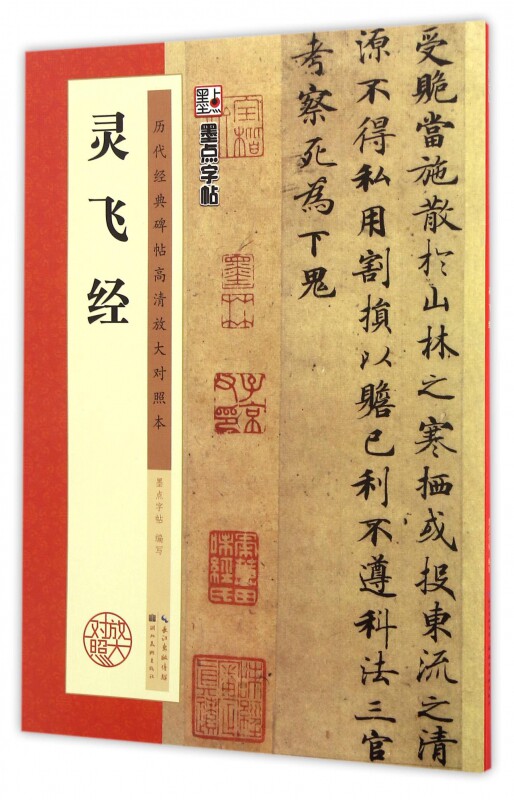 灵飞经
历代经典碑帖高清放大对照本
墨点字帖 编写
放大
对照
长江出版传媒
湖北美术出版社
墨点
墨点字帖
墨林
子京父印
受脆當施散於山林之寒栖或投東流之清
源不得私用割損以贍已利不遵科法三官
考察死為下鬼